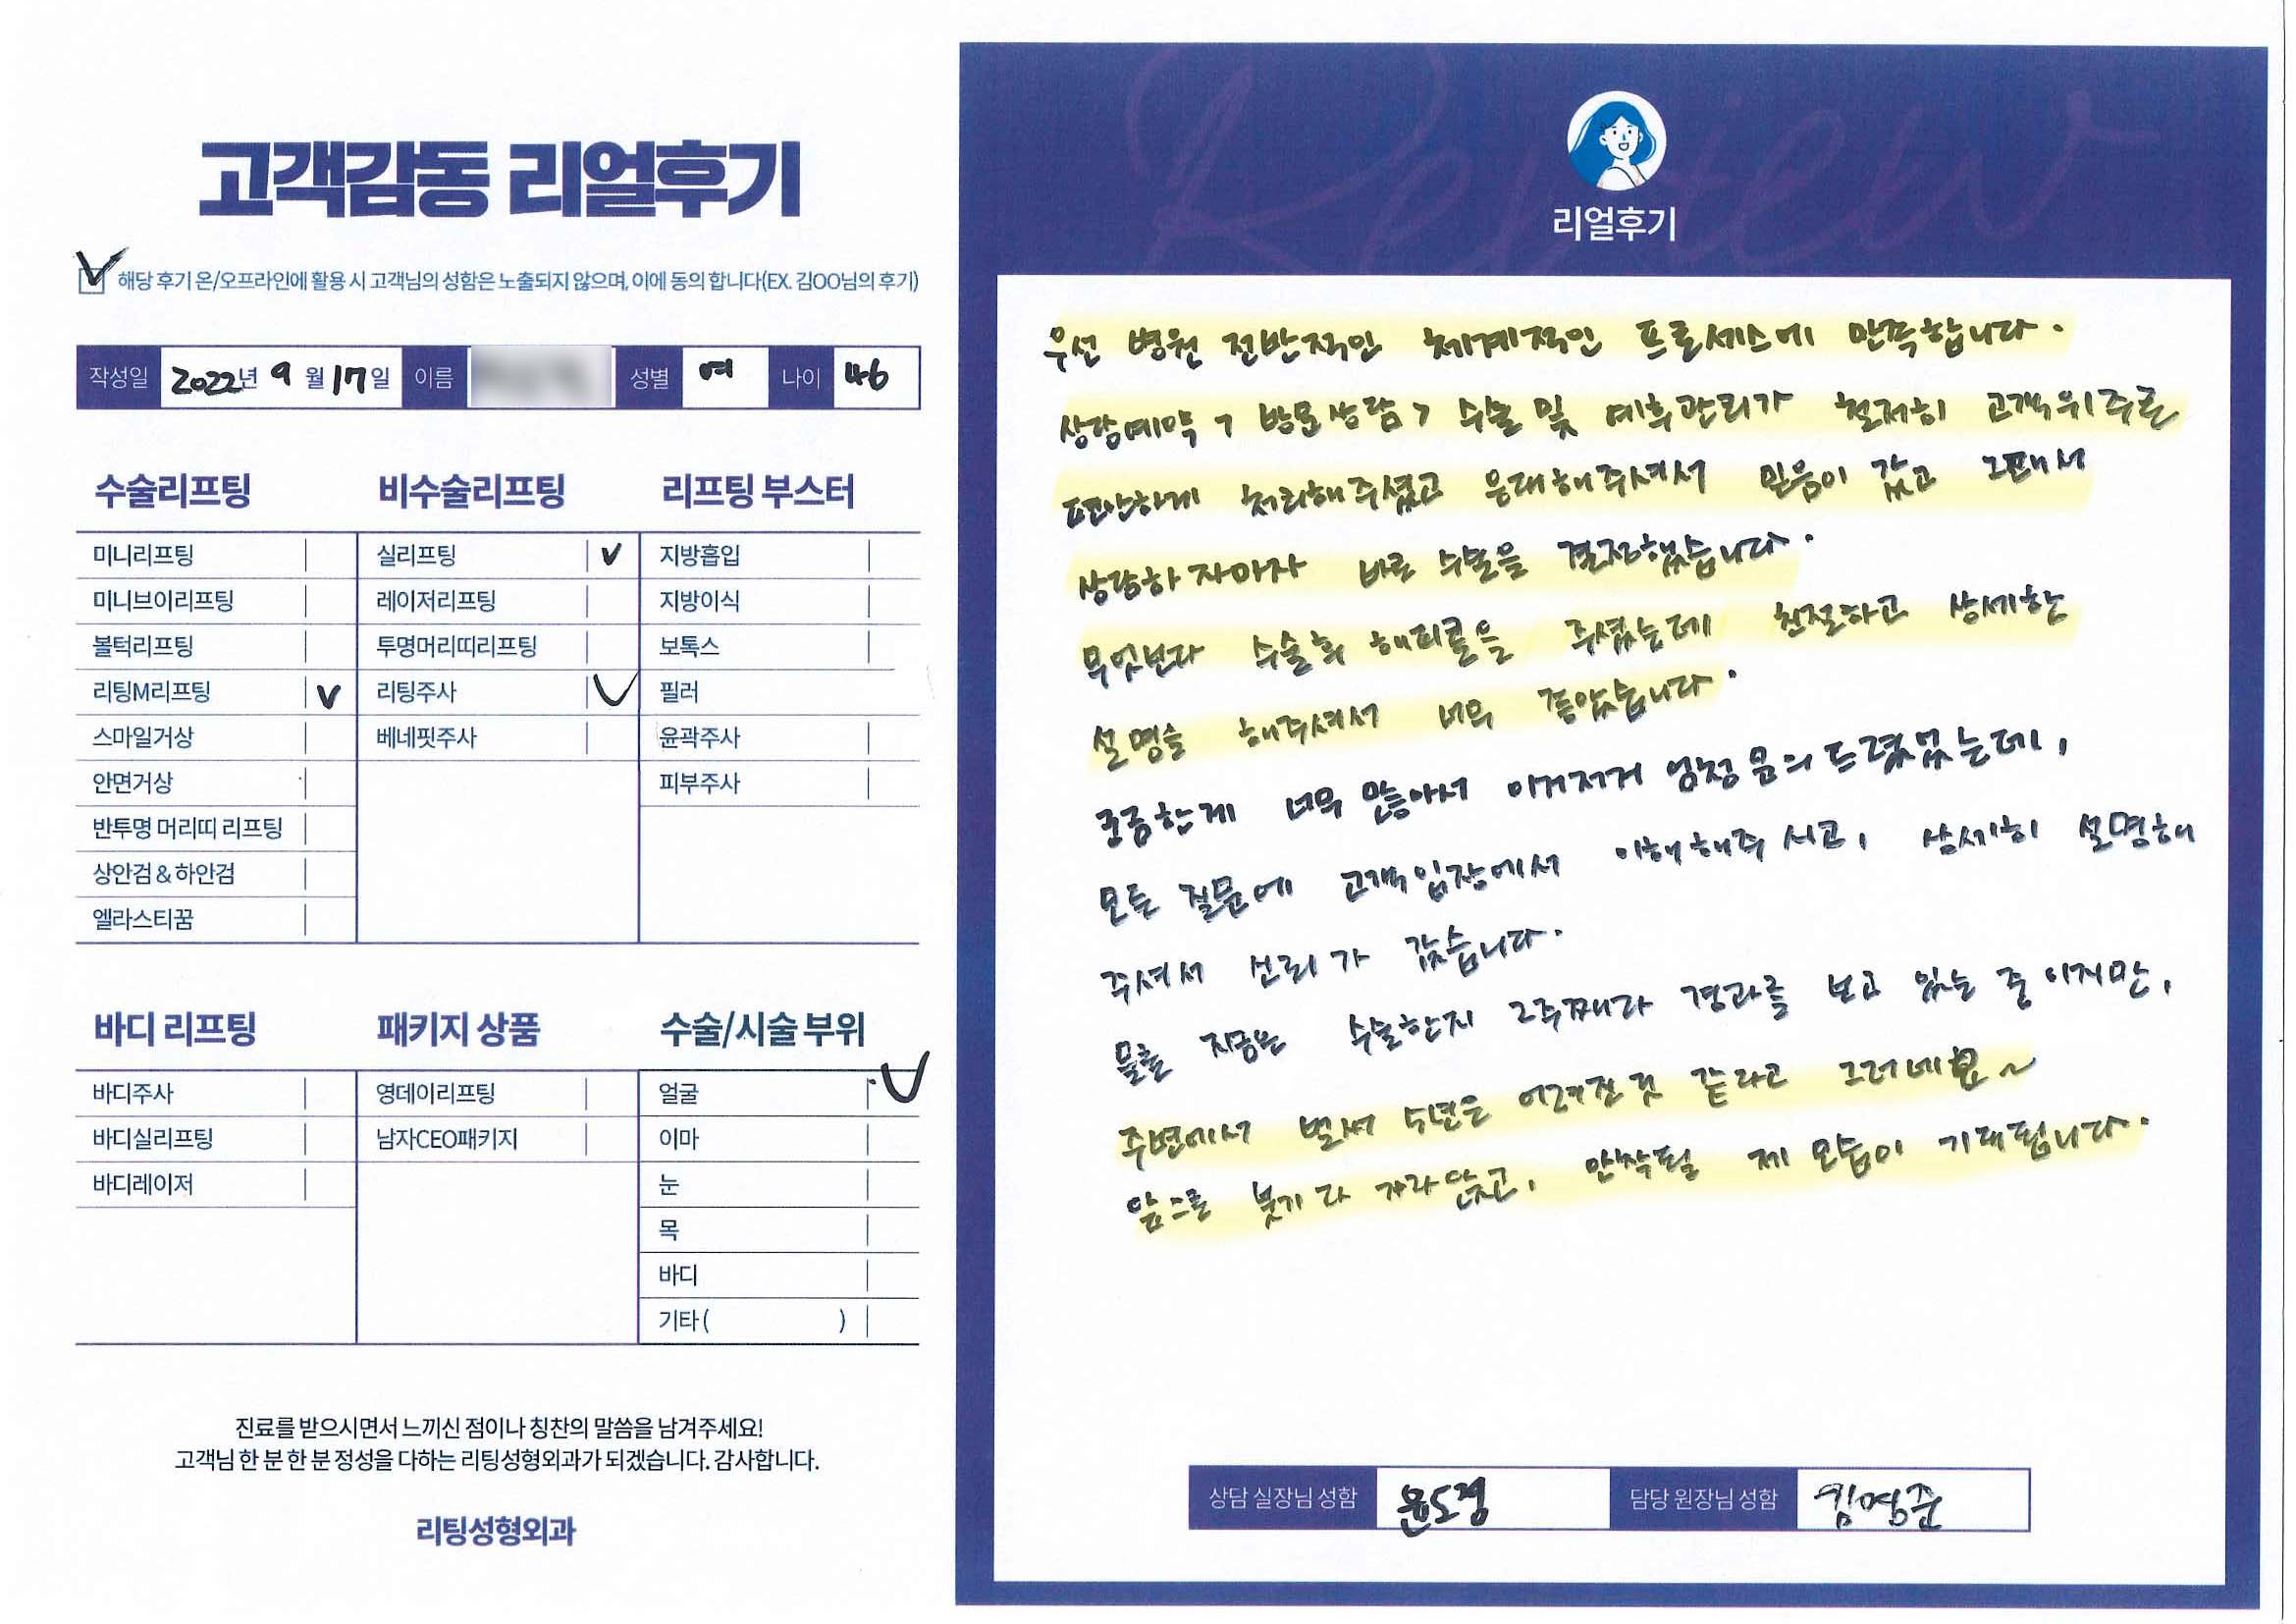 고객감동 리얼후기
해당 후기 온/오프라인에 활용 시 고객님의 성함은 노출되지 않으며, 이에 동의 합니다(EX. 김OO님의 후기)
작성일 2022년 9월 17일 이름 성별 여 나이 46
수술리프팅
미니리프팅
미니브이리프팅
볼턱리프팅
리팅M리프팅 V
스마일거상
안면거상
반투명 머리띠 리프팅
상안검 & 하안검
엘라스티꿈
비수술리프팅
실리프팅 V
레이저리프팅
투명머리띠리프팅
리팅주사 V
베네핏주사
리프팅 부스터
지방흡입
지방이식
보톡스
필러
윤곽주사
피부주사
바디 리프팅
바디주사
바디실리프팅
바디레이저
패키지 상품
영데이리프팅
남자CEO패키지
수술/시술 부위
얼굴 V
이마
눈
목
바디
기타 ( )
진료를 받으시면서 느끼신 점이나 칭찬의 말씀을 남겨주세요!
고객님 한 분 한 분 정성을 다하는 리팅성형외과가 되겠습니다. 감사합니다.
리팅성형외과
Review
리얼후기
우선 병원 전반적인 체계적인 프로세스에 만족합니다.
상담예약, 방문상담, 수술 및 예후관리가 철저히 고객위주로
편안하게 처리해주셨고 응대해주셔서 믿음이 갔고 그래서
상담하자마자 바로 수술을 결정했습니다.
무엇보다 수술후 해피콜을 주셨는데 친절하고 상세한
설명을 해주셔서 너무 좋았습니다.
궁금한게 너무 많아서 이거저거 엄청 문의드렸었는데,
모든 질문에 고객입장에서 이해해주시고, 상세히 설명해
주셔서 신뢰가 갔습니다.
물론 지금은 수술한지 2주째라 경과를 보고 있는 중이지만,
주변에서 벌써 5년은 어려진 것 같라고 그러네요~
앞으로 붓기 다 가라앉고, 안착될 제 모습이 기대됩니다.
상담 실장님 성함 윤도경
담당 원장님 성함 김영준